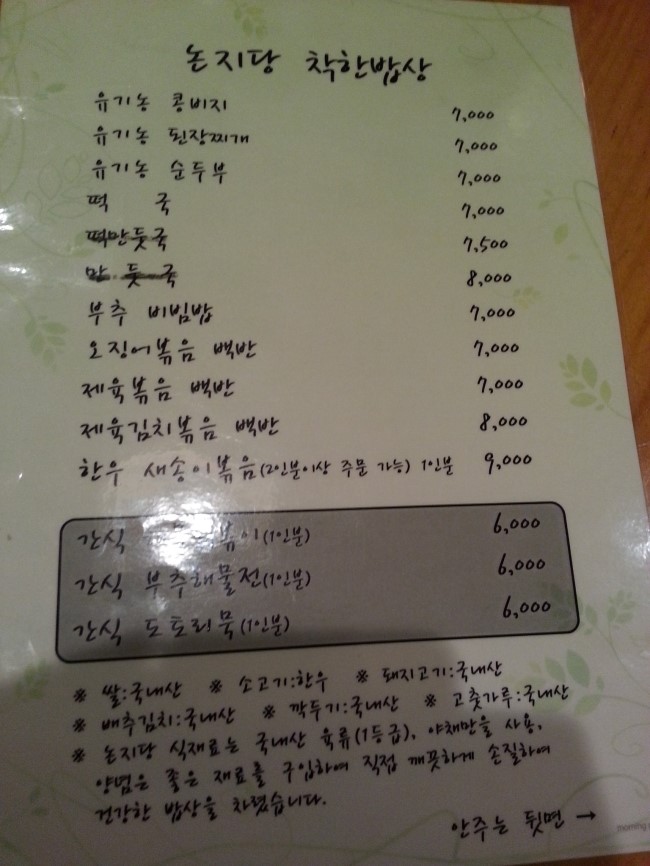 논지당 착한밥상
유기농 콩비지 7,000
유기농 된장찌개 7,000
유기농 순두부 7,000
떡 국 7,000
떡만둣국 7,500
만 둣 국 8,000
부추 비빔밥 7,000
오징어볶음 백반 7,000
제육볶음 백반 7,000
제육김치볶음 백반 8,000
한우 새송이볶음(2인분이상 주문 가능) 1인분 9,000
간식 볶이(1인분) 6,000
간식 부추해물전(1인분) 6,000
간식 도토리묵(1인분) 6,000
※ 쌀:국내산 ※ 소고기:한우 ※ 돼지고기:국내산
※ 배추김치:국내산 ※ 깍두기:국내산 ※ 고춧가루:국내산
※ 논지당 식재료는 국내산 육류(1등급), 야채만을 사용,
양념은 좋은 재료를 구입하여 직접 깨끗하게 손질하여
건강한 밥상을 차렸습니다.
안주는 뒷면 →
morning